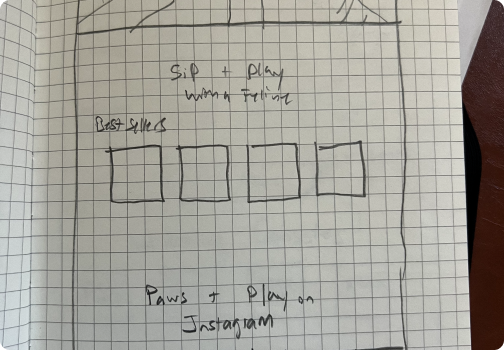 Sip + Play
with a Feline
Best Sellers
Paws + Play on
Instagram